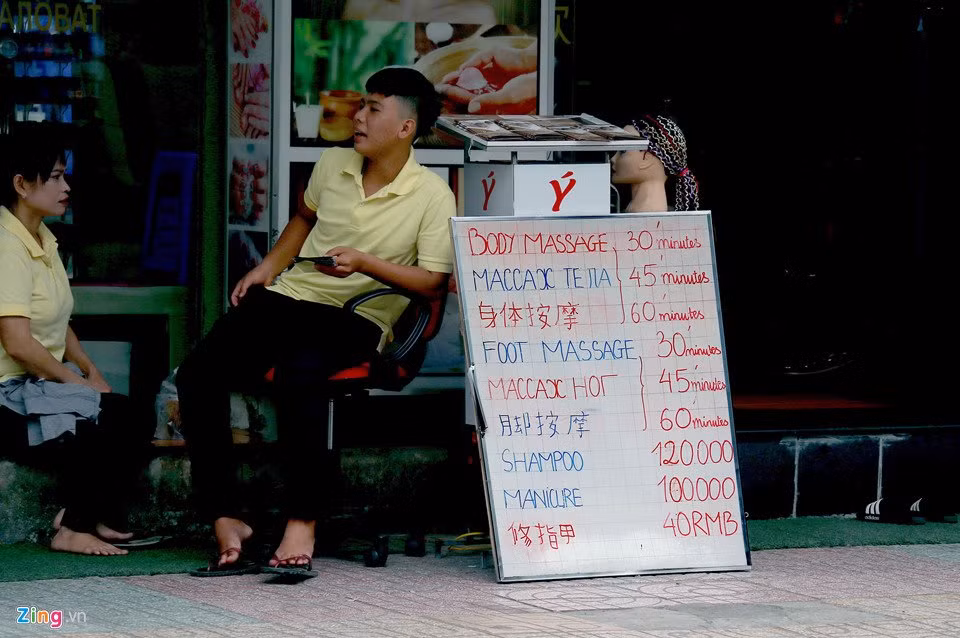 АЛОВАТ
Ý
Ý
BODY MASSAGE 30 minutes
МАССАЖ ТЕЛА 45 minutes
身体按摩 60 minutes
FOOT MASSAGE 30 minutes
МАССАЖ НОГ 45 minutes
脚按摩 60 minutes
SHAMPOO 120.000
MANICURE 100.000
修指甲 40RMB
adidas
Zing.vn